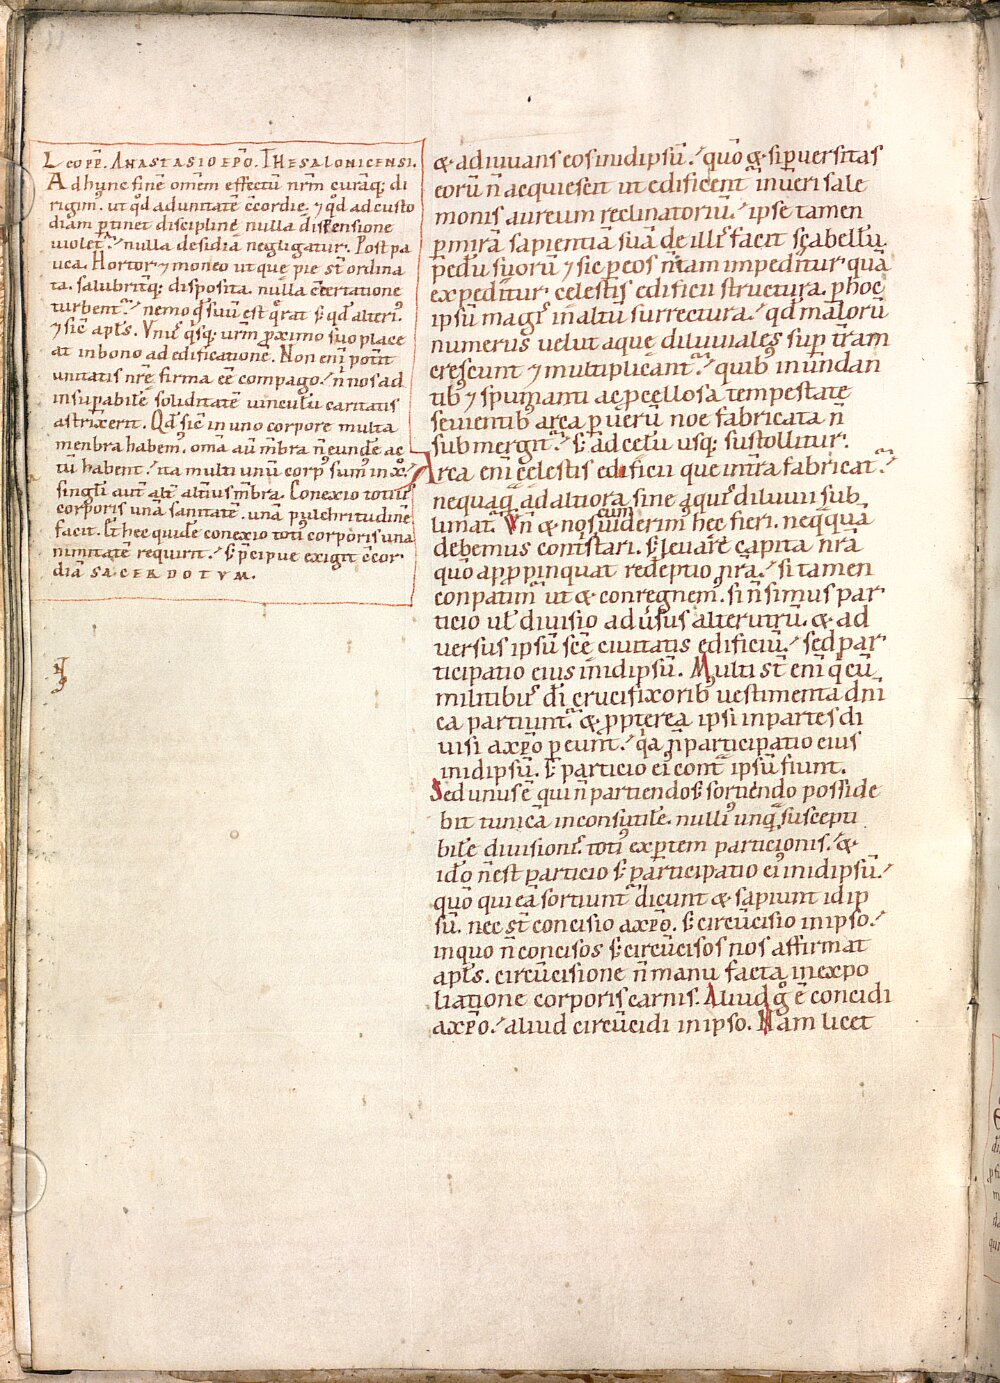 Leo pp̄. Anastasio ep̄o. Thesalonicensi.
Ad hunc finē omēm effectū nr̄m curāq; di
rigim᷒. ut qd̄ ad unitatē c̄cordię ⁊ qd̄ ad custo
diam p̱tinet disciplinę nulla dissensione
violet᷑. nulla desidia negligatur. Post pa
uca. Hortor ⁊ moneo ut quę pie st̄ ordina
ta. salubritq; disposita. nulla c̄certatione
turbent᷑. nemo qd̄ suū est q̄rat s; qd̄ alteri᷒.
⁊ sic̄ apl̄s. Vnus q̄sq; ur̄m proximo suo place
at in bono ad edificatione. Non eni potit
unitatis nr̄ę firma eē compago. n̄ nos ad
insuꝑabilē soliditatē uinculū caritatis
astrixerit. Qd̄ sic̄ in uno corpore multa
menbra habem᷒. om̄a au m̄bra n̄ eundē ac
tū habent. ita multi unū corp᷒ sum᷒ in xp̄o.
singl̄i aut̄ alt̄ alt̄ius m̄bra. Conexio totius
corporis unā sanitatē. unā pulchritudinē
facit. Et hec quidē conexio toti᷒ corporis una
nimitatē requirit. s; p̄cipue exigit c̄cor
diā SACERDOTVM.
& adiuuans eos in idipsū. quō & si ꝑuersitas
eorū n̄ acquiescit ut edificent᷑ in ueri salo
monis aureum reclinatoriū. ipse tamen
ꝑ mirā sapientiā suā de illis facit scabellū
pedū suorū ⁊ sic ꝑ eos n̄ tam impeditur quā
expeditur cęlestis edificii structura. ꝑ hoc
ipsū magis in altū surrectura. qd̄ malorū
numerus velut aquę diluuiales suꝑ tr̄am
crescunt ⁊ multiplicant᷑. quib᷒ inundan
tib᷒ ⁊ spumanti ac ꝓcellosa tempestate
seuientib᷒ arca ꝑ uerū noe fabricata n̄
submergit᷑. s; ad celū usq; sustollitur.
Arca eni cęlestis edificii que intra fabricat᷑
nequaq̄ ad altiora sine aquis diluuii sub
limat᷑. Vn̄ & nos cum uiderim᷒ hęc fieri. neq̄quā
debemus contristari. s; leuare capita nr̄a
quō appropinquat redeptio nr̄a. si tamen
conpatim᷑ ut & conregnem᷒. si n̄ simus par
ticio ul̄ diuisio aduersus alterutrū. & ad
uersus ipsū sc̄ę ciuitatis edificiū. sed par
ticipatio eius in idipsū. Multi st̄ eni q̄ cū
militibus dn̄i crucifixorib᷒ uestimenta dn̄i
ea partiunt᷑. & ꝓpterea ipsi in partes di
uisi a xp̄o ꝑeunt. q̄a n̄ participatio eius
in idipsū. s; particio ei᷒ cont̄ ipsū fiunt.
Sed unus ē qui n̄ partiendo s; sortiendo posside
bit tunicā inconsutilē. nulli᷒ unq̄ suscepti
bilē diuisionis. toti᷒ exꝑtem particionis. &
ido n̄ est particio s; participatio ei᷒ in idipsū.
quō qui eā sortiunt᷑ dicunt & sapiunt idip
sū. nec st̄ concisio a xp̄o. s; circūcisio in ipso.
in quo n̄ concisos s; circūcisos nos affirmat
apl̄s. circūcisione n̄ manu facta in expo
liatione corporis carnis. Aliud g᷒ ē concidi
a xp̄o. aliud circūcidi in ipso. Nam licet